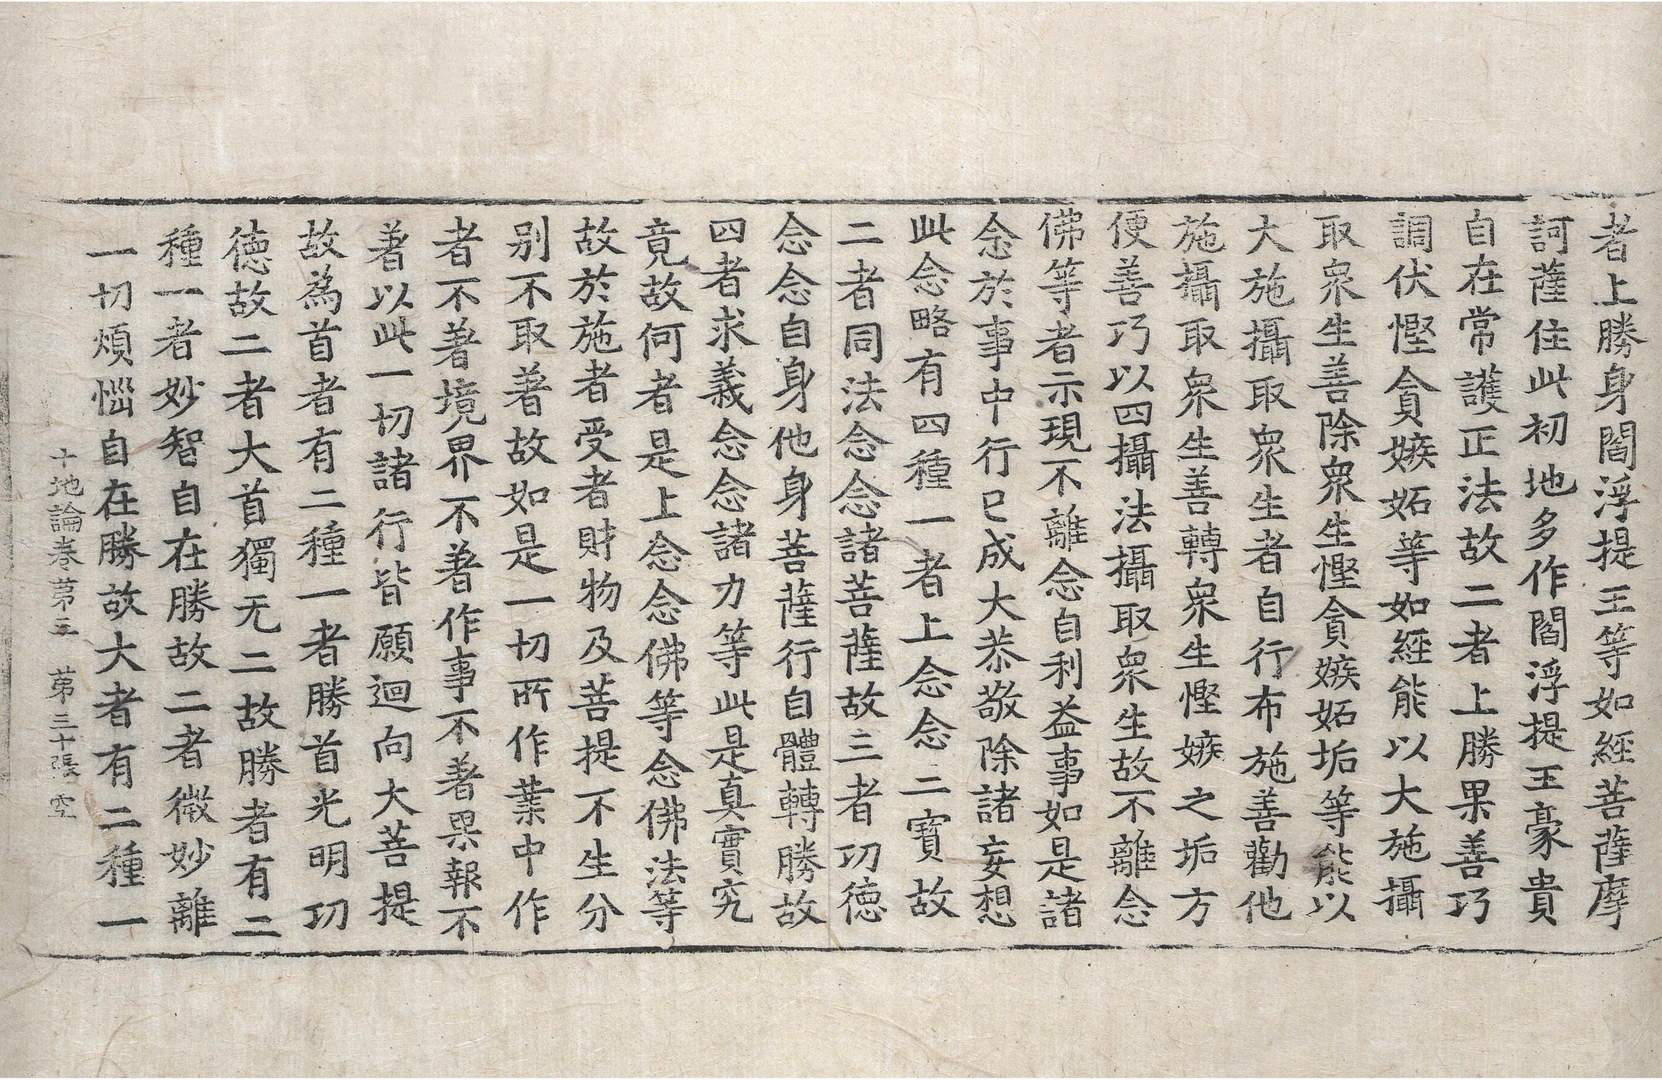 者上勝身閻浮提王等如經菩薩摩
訶薩住此初地多作閻浮提王豪貴
自在常護正法故二者上勝果善巧
調伏慳貪嫉妬等如經能以大施攝
取衆生善除衆生慳貪嫉妬垢等能以
大施攝取衆生者自行布施善勸他
施攝取衆生善轉衆生慳嫉之垢方
便善巧以四攝法攝取衆生故不離念
佛等者示現不離念自利益事如是諸
念於事中行已成大恭敬除諸妄想
此念略有四種一者上念念三寶故
二者同法念念諸菩薩故三者功德
念念自身他身菩薩行自體轉勝故
四者求義念念諸力等此是真實究
竟故何者是上念念佛等念佛法等
故於施者受者財物及菩提不生分
别不取著故如是一切所作業中作
者不著境界不著作事不著果報不
著以此一切諸行皆願迴向大菩提
故爲首者有二種一者勝首光明功
德故二者大首獨无二故勝者有二
種一者妙智自在勝故二者微妙離
一切煩惱自在勝故大者有二種一
十地論卷第三　第三十張　空